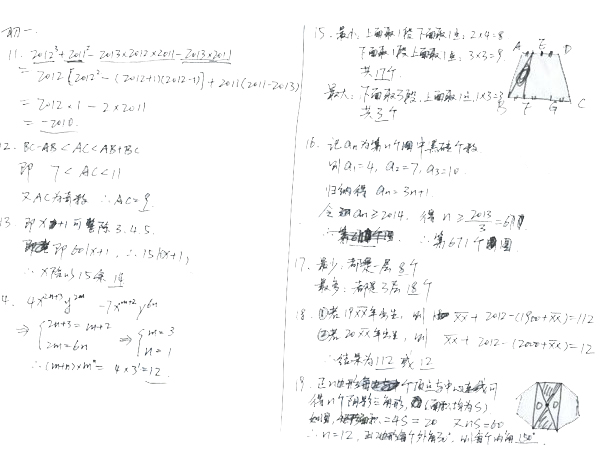 初一.
11. 2012³+2011²-2013×2012×2011-2013×2011
=2012[2012²-(2012+1)(2012-1)]+2011(2011-2013)
=2012×1-2×2011
=-2010.
12. BC-AB<AC<AB+BC
即 7<AC<11
又AC为奇数 ∴AC=9.
13. 即x+1可整除 3.4.5.
即 60|x+1, ∴15|x+1,
∴x除以15余14
14. 4x²ⁿ⁺³y²ᵐ -7xᵐ⁺²y⁶ⁿ
⇒{2n+3=m+2 2m=6n ⇒{m=3 n=1
∴(m+n)×mⁿ=4×3¹=12.
15. 最小:上面取1段下面取1点:2×4=8
下面取1段上面取1点:3×3=9
共17个.
最大:下面取3段,上面取1点,1×3=3
共3个
A E D
B F G C
16. 记aₙ为第n个图中 个数
则a₁=4, a₂=7, a₃=10.
归纳得 aₙ=3n+1.
令 aₙ≥2014, 得 n≥2013/3=671
∴第671个图
17. 最少:都是一层 8个
最多:都是3层 18个
18. ①若19XX年出生, 则 XX+2012-(1900+XX)=112
②若20XX年出生, 则 XX+2012-(2000+XX)=12
∴结果为112或12
19. 正n边形 个顶点与中心 可
得n个 三角形, (面积均为S)
如图, =4S=20 又nS=60
∴n=12, 正12边形每个外角30°, 则每个内角150°.